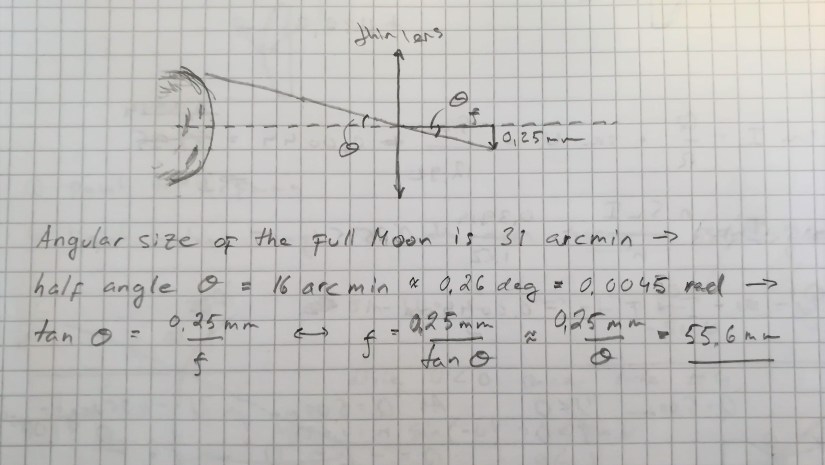 thin lens
θ
f
θ
0,25 mm
Angular size of the full Moon is 31 arcmin →
half angle θ = 16 arcmin ≈ 0,26 deg = 0,0045 rad →
tan θ = 0,25 mm / f ↔ f = 0,25 mm / tan θ ≈ 0,25 mm / θ = 55,6 mm